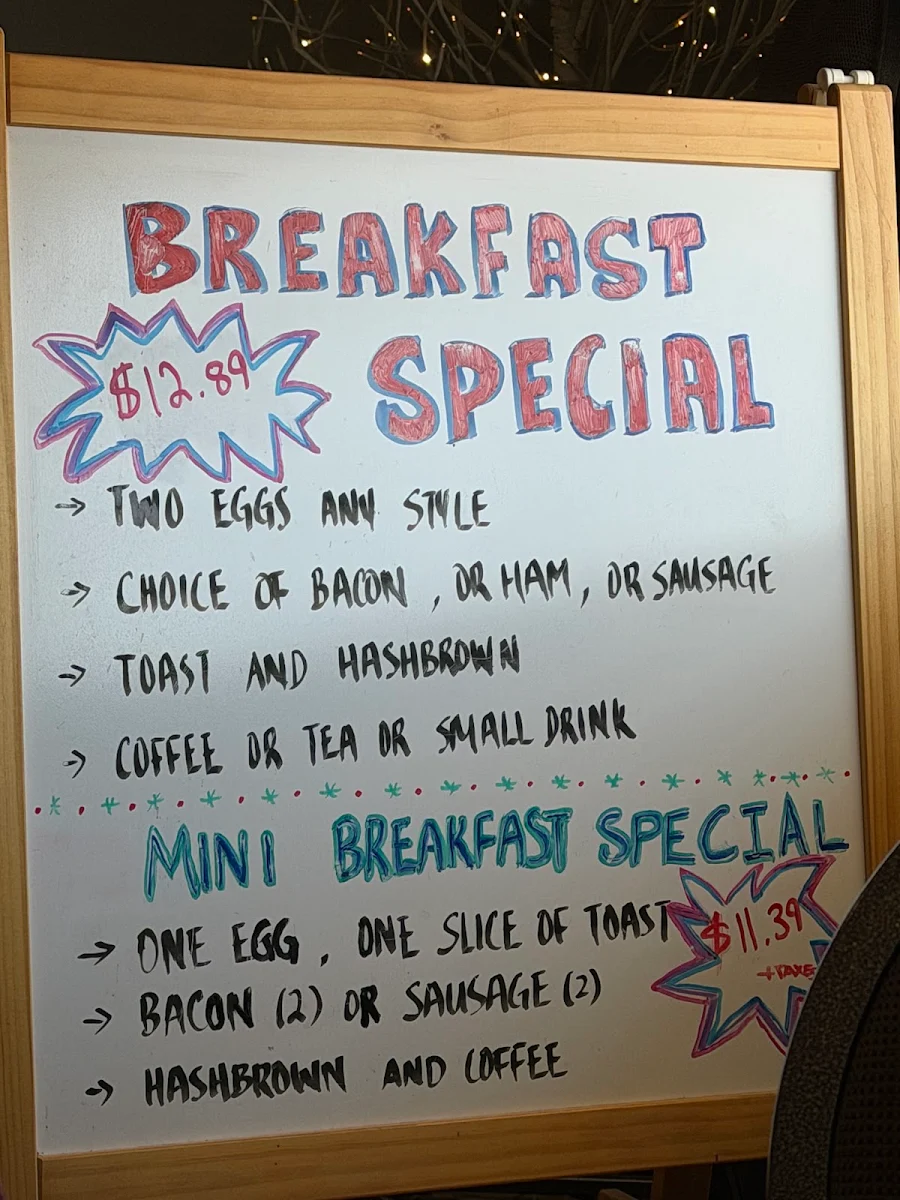 BREAKFAST
SPECIAL
$12.89
→ TWO EGGS ANY STYLE
→ CHOICE OF BACON , OR HAM, OR SAUSAGE
→ TOAST AND HASHBROWN
→ COFFEE OR TEA OR SMALL DRINK
MINI BREAKFAST SPECIAL
$11.39
→ ONE EGG , ONE SLICE OF TOAST
→ BACON (2) OR SAUSAGE (2)
→ HASHBROWN AND COFFEE